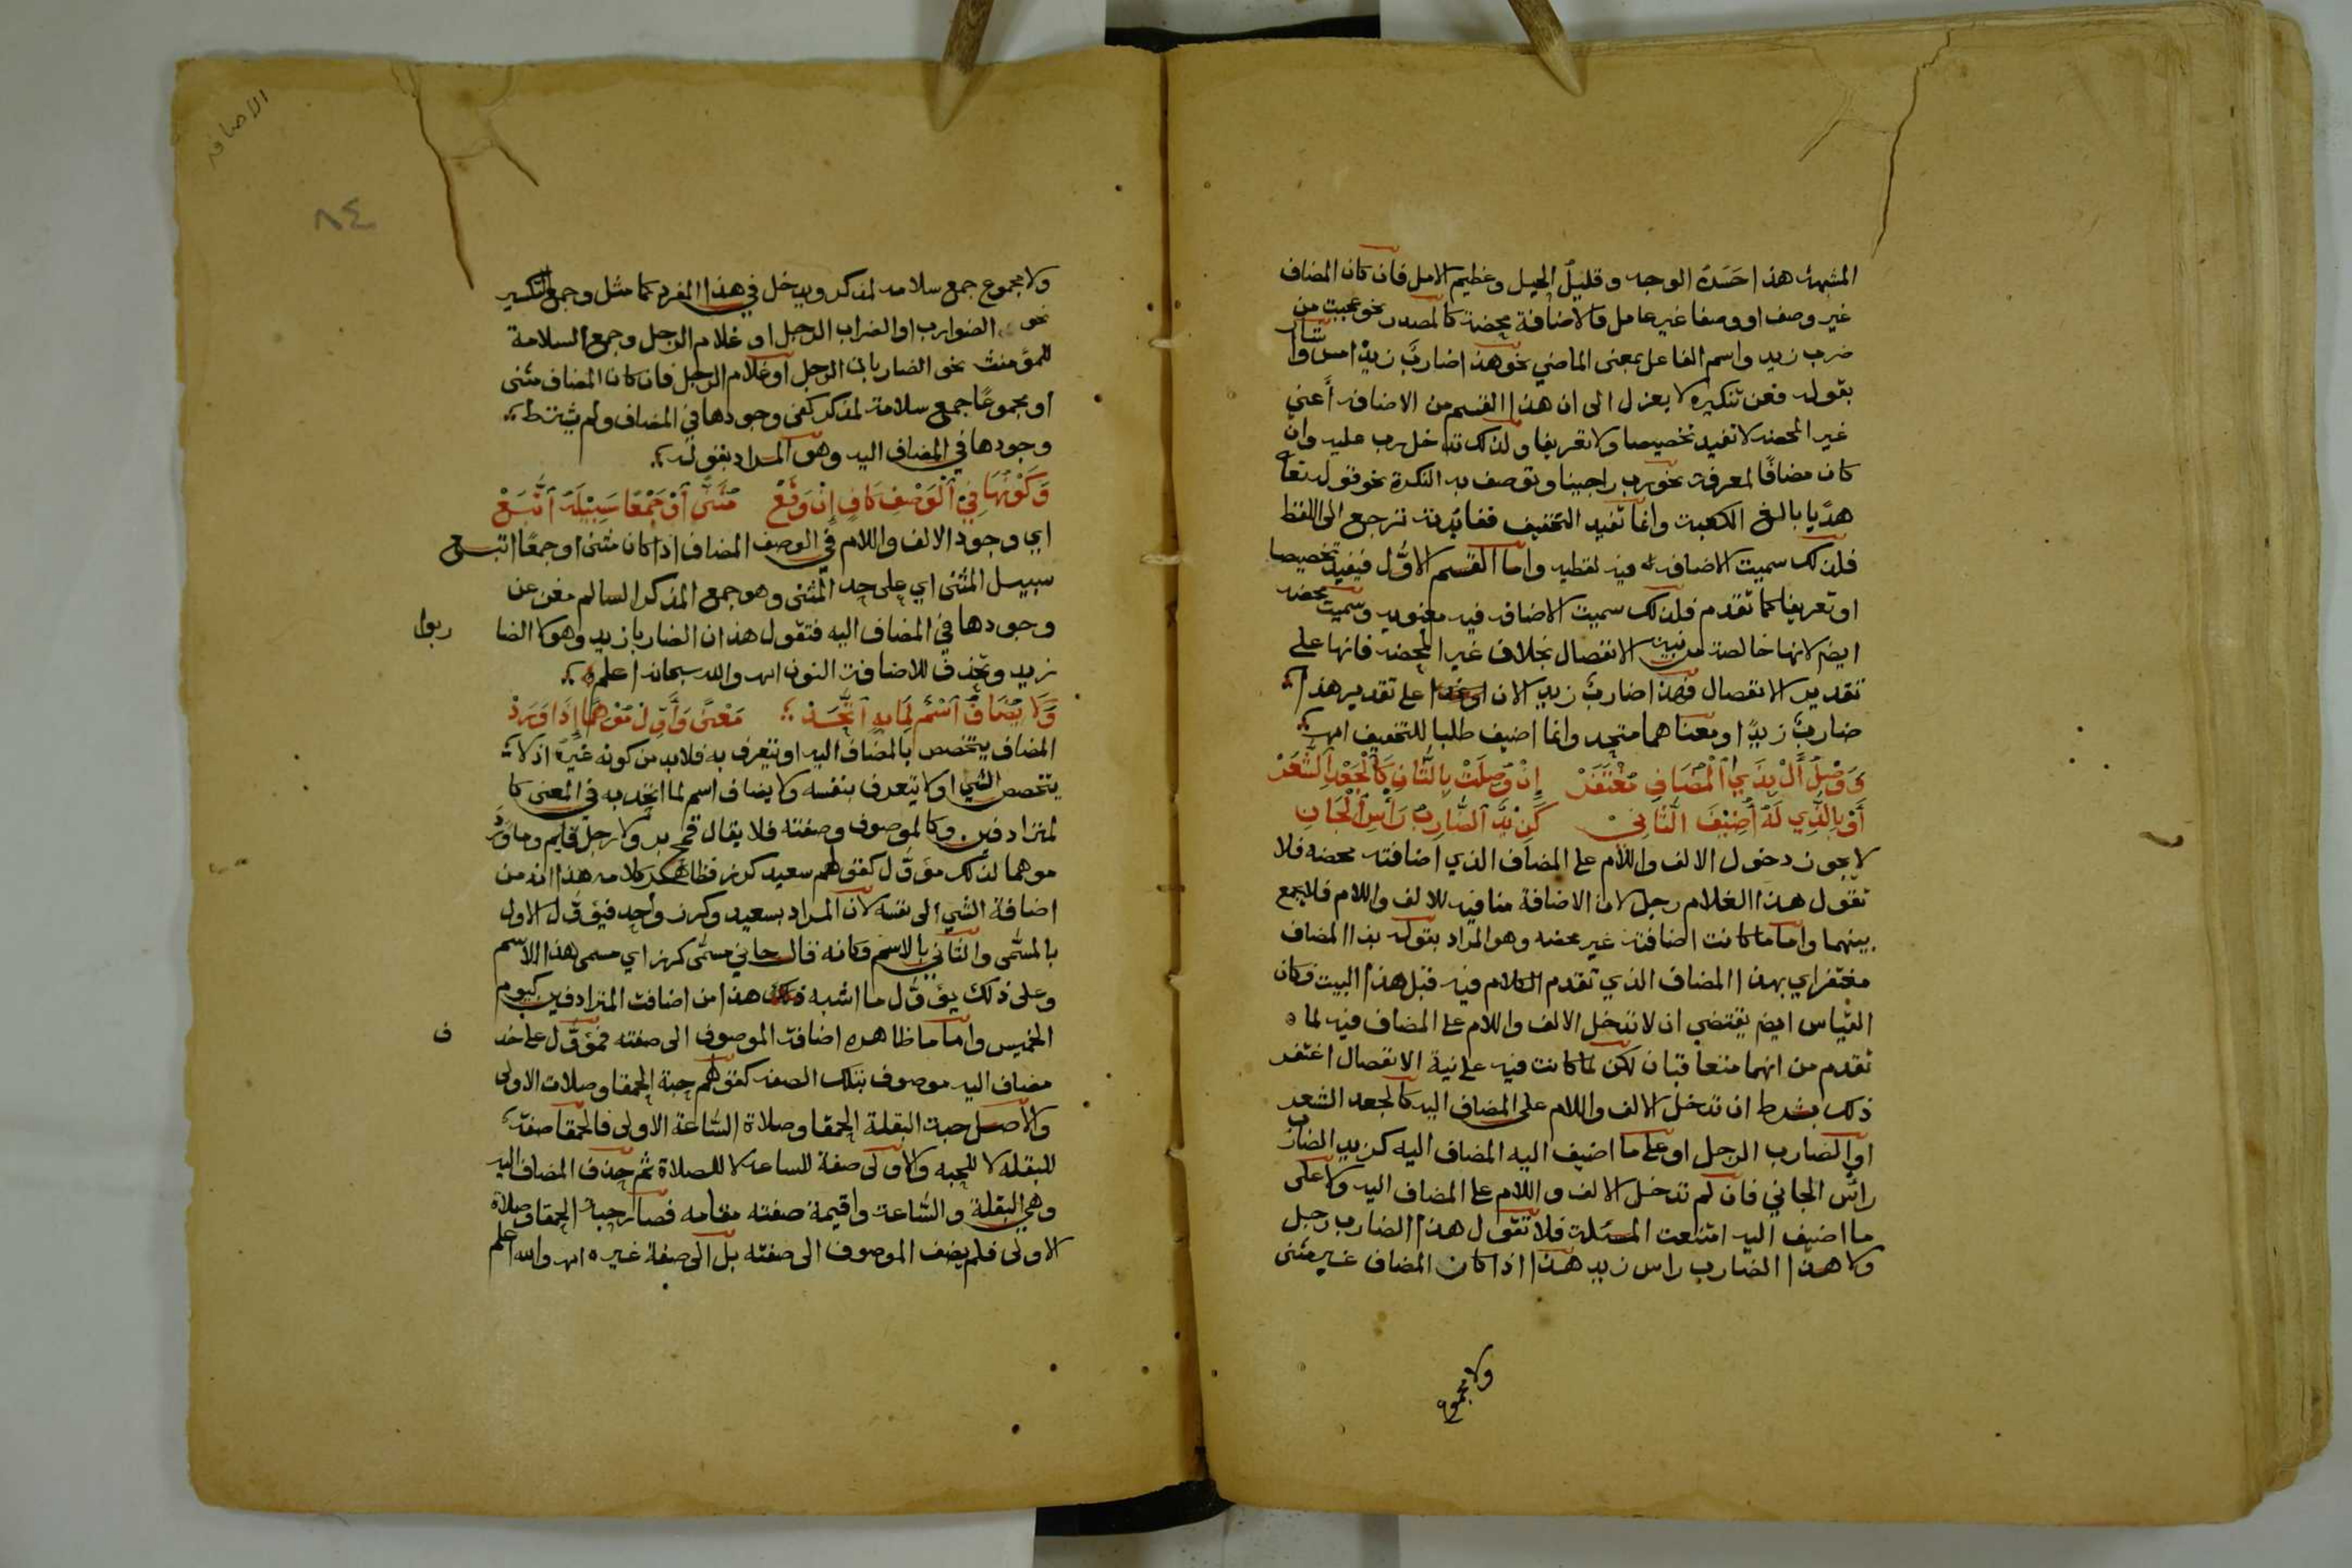 المشبهة هذا حَسَنُ الوجه وقليلُ الحيل وعظيم الامل فان كان المضاف
غير وصف او وصفا غير عامل فالاضافة محضة كالمصدر نحو عجبت من
ضرب زيد واسم الفاعل بمعنى الماضي نحو هذا ضاربُ زيدٍ امس واشار
بقوله فعن تنكيره لا يعزل الى ان هذا القسم من الاضافة أعني
غير المحضه لا تفيد تخصيصا ولا تعريفا ولذلك تدخل رب عليه وان
كان مضافًا لمعرفة نحو رب راجينا وتوصف به النكرة نحو قوله تعا
هديًا بالغ الكعبة وانما تفيد التخفيف ففائدته ترجع الى اللفظ
فلذلك سميت الاضافه فيه لفظيه واما القسم الاوّل فيفيد تخصيصا
او تعريفا كما تقدم فلذلك سميت الاضافه فيه معنويه وسميت محضه
ايضا لانها خالصة من نية الانفصال بخلاف غير المحضه فانها على
تقدير الانفصال فهذا ضاربُ زيد الان او غدا على تقدير هذا
ضاربٌ زيدًا ومعناهما متحد وانما اضيف طلبا للتخفيف اهـ
وَوَصْلُ أَلْ بِذَي الْمُضَافِ مُغْتَفَرْ إِنْ وُصِلَتْ بِالثَّانِ كَالْجَعْدِ الشَّعَرْ
أَوْ بِالَّذِي لَهُ أُضِيْفَ الثَّانِيْ كَزَيْدٌ الضَّارِبُ رَأْسِ الْجَانِي
لا يجوز دخول الالف واللام على المضاف الذي اضافته محضه فلا
تقول هذا الغلام رجل لان الاضافة منافيه للالف واللام فلا يجمع
بينهما واما ما كانت اضافته غير محضه وهو المراد بقوله بذا المضاف
مغتفر اي بهذا المضاف الذي تقدم الكلام فيه قبل هذا البيت فكان
القياس ايضا يقتضي ان لا تدخل الالف واللام على المضاف فيه لما
تقدم من انهما متعاقبان لكن لما كانت فيه على نية الانفصال اغتفر
ذلك بشرط ان تدخل الالف واللام على المضاف اليه كالجعد الشعر
او الضارب الرجل او على ما اضيف اليه المضاف اليه كزيد الضارب
راس الجاني فان لم تدخل الالف واللام على المضاف اليه ولا على
ما اضيف اليه امتنعت المسئلة فلا تقول هذا الضارب رجل
ولا هذا الضارب راس زيد هذا اذا كان المضاف غير مثنى
ولا مجموع
الاضافه
٨٤
ولا مجموع جمع سلامه لمذكر ويدخل في هذا المفرد كما مثل وجمع التكسير
نحو الضوارب او الضراب الرجل او غلام الرجل وجمع السلامة
للمؤمنث نحو الضاربات الرجل او غلام الرجل فان كان المضاف مثنى
او مجموعًا جمع سلامة لمذكر كفى وجودها في المضاف ولم يشترط
وجودها في المضاف اليه وهو المراد بقوله
وَكَوْنُهَا فِيْ الْوَصْفِ كَافٍ إِنْ وَقَعْ مُثَنًّى أَوْ جَمْعًا سَبِيْلَهُ اتَّبَعْ
اي وجود الالف واللام في الوصف المضاف اذا كان مثنى او جمعًا اتبع
سبيل المثنى اي على حد المثنى وهو جمع المذكر السالم مغن عن
وجودها في المضاف اليه فتقول هذان الضاربا زيد وهولا الضا ربوا
زيد وتحذف للاضافة النون اهـ والله سبحانه اعلم
وَلَا يُضَافُ اسْمٌ لِمَا بِهِ اتَّحَدْ مَعْنًى وَأَوِّلْ مُوْهِمًا إِذَا وَرَدْ
المضاف يتخصص بالمضاف اليه او يتعرف به فلابد من كونه غيره اذ لا
يتخصص الشي او لا يتعرف بنفسه ولا يضاف اسم لما اتحد به في المعنى كا
لمترادفين وكالموصوف وصفته فلا يقال قمح بر ولا رجل قايم وما ورد
موهما لذلك مؤوّل كقولهم سعيد كرز فظاهر كلامه هذا انه من
اضافة الشي الى نفسه لان المراد بسعيد وكرز واحد فيؤوّل الاول
بالمسمّى والثاني بالاسم فكانه قال جاني مسمّى كرز اي مسمى هذا الاسم
وعلى ذلك يؤوّل ما اشبه هذا من اضافة المترادفين كيوم
الخميس واما ما ظاهره اضافة الموصوف الى صفته فمؤوّل على حذ ف
مضاف اليه موصوف بتلك الصفه كقولهم حبة الحمقا وصلات الاولى
والاصل حبة البقلة الحمقا وصلاة الساعة الاولى فالحمقا صفة
للبقله لا للحبه والاولى صفة للساعة لا للصلاة ثم حذف المضاف اليه
وهي البقلة والساعة واقيمة صفته مقامه فصار حبة الحمقا وصلاة
الاولى فلم يضف الموصوف الى صفته بل الى صفة غيره اهـ والله اعلم